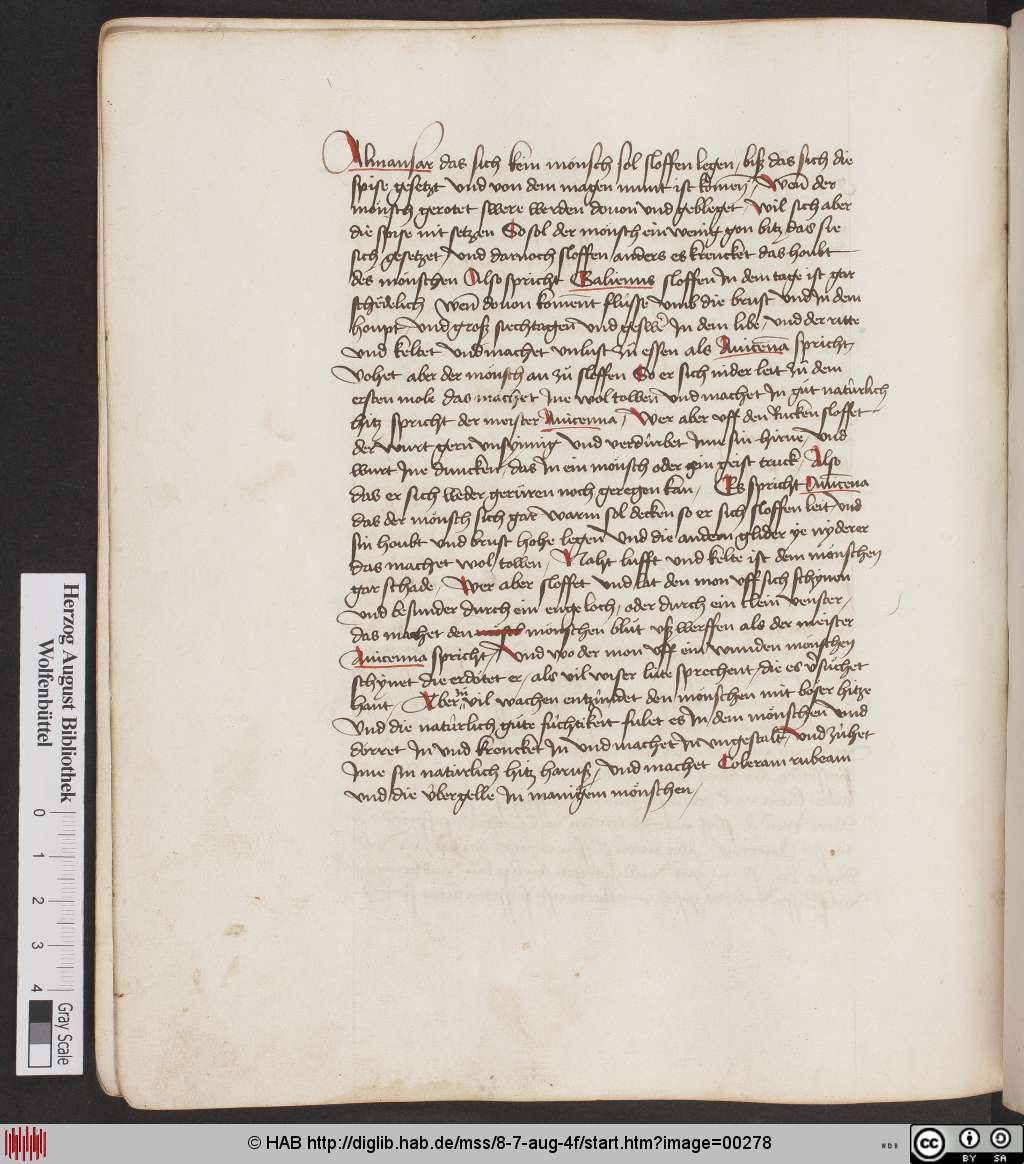 Almansar das sich kein mönsch sol sloffen legen / biß das sich die
spise gesetzt vnd von dem magen munt ist komen / Wen̄ der
mönsch gerotet swere werden douon vnd geblegt / Wil sich aber
die spise nit setzen So sol der mönsch ein wenig gon bitz das sie
sich gesetzet / vnd darnoch sloffen anders es krencket das houbt
des mönschen Also spricht Galienus sloffen In dem tage ist gar
schedelich wen̄ douon koment flüsse vmb die brust vnd In dem
houpt / vnd groß siechtagen vnd In dem libe / vnd der ritte
vnd keltet vnd machet vnlust zů essen als Auicēna spricht /
Vohet aber der mönsch an zů sloffen So er sich nider leit zů dem
ersten mole das machet Ine wol töwen vnd machet In gůt natürlich
hitz spricht der meister Auicenna / Wer aber vff den Rucken sloffet
der wurt gern vnsynnig vnd verdürbet Ime sin hirne / vnd
wurt Ine duncken / das In ein mönsch oder ein geist truck / Also
das er sich weder gerüren noch geregen kan / Es spricht Auicēna
das der mönsch sich gar warm sol decken so er sich sloffen leit / vnd
sin houbt vnd brust hohe legen vnd die andern glider ye nyderer
das machet wol töwen / Naht lufft vnd kelte ist dem mönschen
gar schade / Wer aber sloffet vnd lat den mon vff sich schynen
vnd besunder durch ein enge loch / oder durch ein clein venster /
das machet den mönschen blůt vß werffen als der meister
Auicenna spricht / Vnd wo der mon vff ein wunden mönschen
schynet die erdötet er / als vil wiser lute sprechent / die es v̄sůchet
hant / Aber vil wachen entzündet den mönschen mit böser hitze
Vnd die natürlich gůte füchtikeit fulet es In dem mönschen vnd
dörret In vnd krencket In vnd machet In vngestalt / vnd zühet
Ime sin natürlich hitz haruß / vnd machet Coleram rubeam
vnd die übergelle In manigem mönschen /
Herzog August Bibliothek
Wolfenbüttel
0 1 2 3 4
Gray Scale
© HAB http://diglib.hab.de/mss/8-7-aug-4f/start.htm?image=00278
WDB
cc BY SA